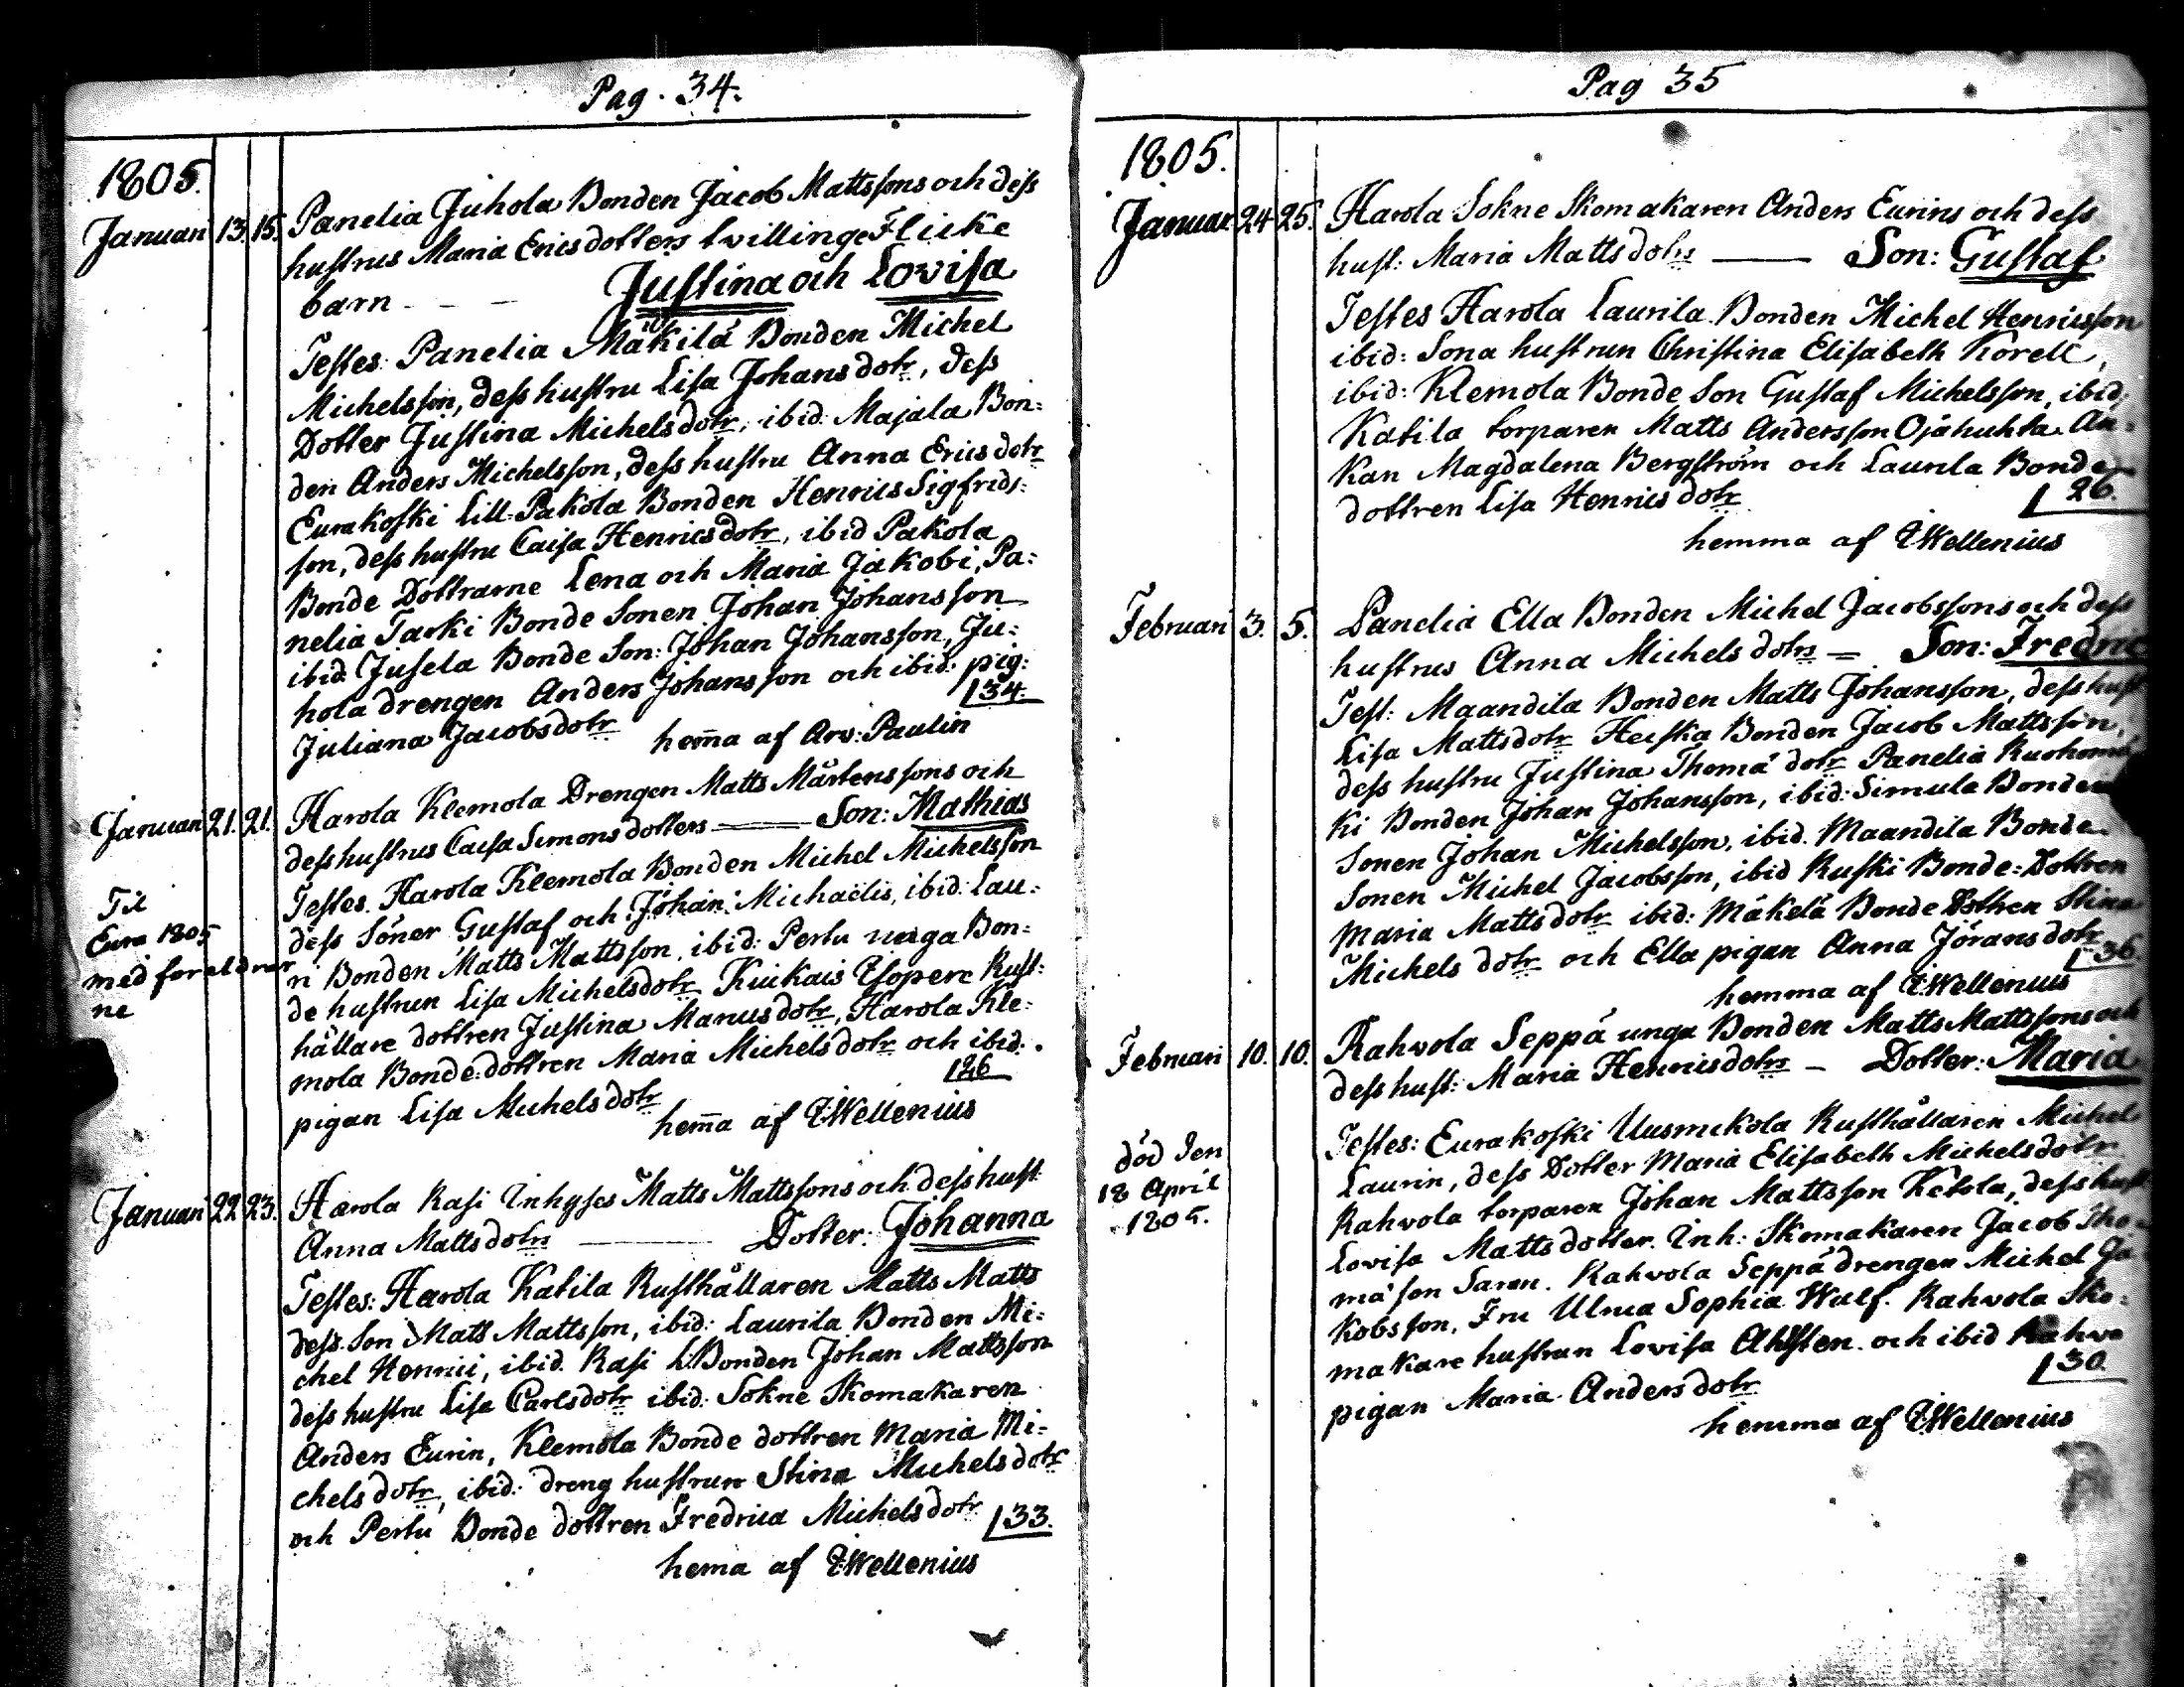 Pag. 34.
1805.
Januari 13. 15. Panelia Juhola Bonden Jacob Mattssons och dess
hustrus Maria Ericsdotters tvillinge Flicke
barn - - Justina och Lovisa
Testes: Panelia Mäkilä Bonden Michel
Michelsson, dess hustru Lisa Johansdotr, dess
Dotter Justina Michelsdotr, ibid: Majala Bon:
den Anders Michelsson, dess hustru Anna Ericsdotr
Eurakoski Lill-Pakola Bonden Henrics Sigfrids:
son, dess hustru Caisa Henricsdotr, ibid Pakola
Bonde Dottrarne Lena och Maria Jakobi, Pa:
nelia Tarki Bonde Sonen Johan Johansson
ibid. Jusela Bonde Son: Johan Johansson, Ju:
hola drengen Anders Johansson och ibid: pig:
Juliana Jacobsdotr 134.
hem̄a af Arv: Paulin
Januari 21. 21. Harola Klemola Drengen Matts Mårtenssons och
dess hustrus Caisa Simonsdotters — Son: Mathias
Testes. Harola Klemola Bonden Michel Michelsson
dess Söner Gustaf och Johan Michaelis, ibid: Lau:
ri Bonden Matts Mattsson, ibid: Pertu unga Bon:
de hustrun Lisa Michelsdotr Kiukais Esopere Rust:
hållare dottren Justina Manusdotr, Harola Kle:
mola Bonde dottren Maria Michelsdotr och ibid:
pigan Lisa Michelsdotr 126
hem̄a af E Wellenius
Til
Eura 1805
med foreldrar
ne
Januari 22 23. Harola Rasi Inhyses Matts Mattssons och dess hust:
Anna Mattsdotrs — Dotter: Johanna
Testes: Harola Katila Rusthållaren Matts Matts
dess Son Matts Mattsson, ibid: Laurila Bonden Mi:
chel Henrici, ibid. Rasi Bonden Johan Mattsson
dess hustru Lisa Carlsdotr ibid: Sokne Skomakaren
Anders Eurin, Klemola Bonde dottren Maria Mi:
chelsdotr, ibid: dreng hustrun Stina Michelsdotr
och Pertu Bonde dottren Fredrica Michelsdotr 133.
hema af E Wellenius
Pag 35
1805.
Januar. 24 25. Harola Sokne Skomakaren Anders Eurins och dess
hust: Maria Mattsdotrs — Son: Gustaf
Testes Harola Laurila Bonden Michel Henricsson
ibid: Sona hustrun Christina Elisabeth Korell,
ibid: Klemola Bonde Son Gustaf Michelsson, ibid:
Katila torparen Matts Andersson Ojahuhta. An:
kan Magdalena Bergström och Laurila Bonde
dottren Lisa Henricsdotr 126.
hemma af E Wellenius
Februari 3. 5. Panelia Ella Bonden Michel Jacobssons och dess
hustrus Anna Michelsdotrs — Son: Fredric
Test: Maandila Bonden Matts Johansson, dess hust
Lisa Mattsdotr Heiska Bonden Jacob Mattsson,
dess hustru Justina Thomä dotr Panelia Ruohomä
ki Bonden Johan Johansson, ibid: Simula Bonde
Sonen Johan Michelsson, ibid. Maandila Bonde
Sonen Michel Jacobsson, ibid Ruski Bonde: Dottren
Maria Mattsdotr ibid: Mäkelä Bonde Dottren Stina
Michelsdotr och Ella pigan Anna Jöransdotr 136
hemma af E Wellenius
Februari 10. 10. Rahvola Seppä unga Bonden Matts Mattssons och
dess hust: Maria Henricsdotrs — Dotter: Maria
död den
18 April
1805.
Testes: Eurakoski Uusmikola Rusthållaren Michel
Laurin, dess Dotter Maria Elisabeth Michelsdotr
Rahvola torparen Johan Mattsson Ketola, dess hust
Lovisa Matts dotter. Inh: Skomakaren Jacob Tho:
mä son Saren. Rahvola Seppä drengen Michel Ja
kobsson, Fru Ulrica Sophia Wulf. Rahvola Sko:
makare hustrun Lovisa Ahlsten och ibid Rahvo
pigan Maria Andersdotr 130
hemma af E Wellenius